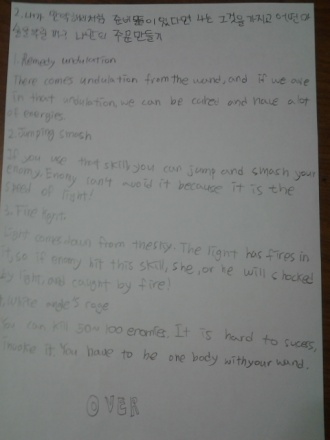 2. 내가
나만의 주문만들기
1. Remedy undulation
There comes undulation from the wand, and if we are
in that undulation, we can be cured and have a lot
of energies.
2. Jumping smash
If you use that skill you can jump and smash your
enemy. Enemy can't avoid it because it is the
speed of light!
3. Fire light
Light comes down from the sky. The light has fires in
it, so if enemy hit this skill, she, or he will shocked
by light, and caught by fire!
4. White angel's rage
You can kill 50~100 enemies. It is hard to sucess,
invoke it. You have to be one body with your wand.
OVER